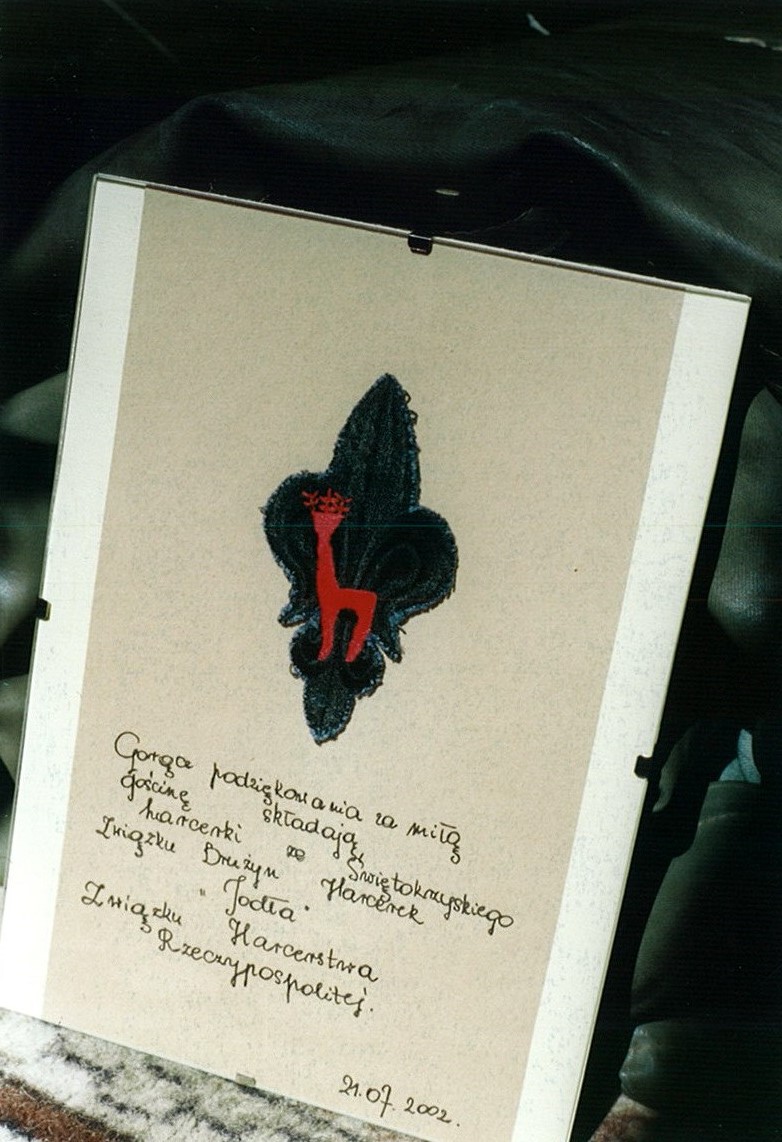 Gorące podziękowania za miłą
gościnę składają
harcerki ze Świętokrzyskiego
Związku Drużyn Harcerek
"Jodła"
Związku Harcerstwa
Rzeczypospolitej.
21.07.2002.